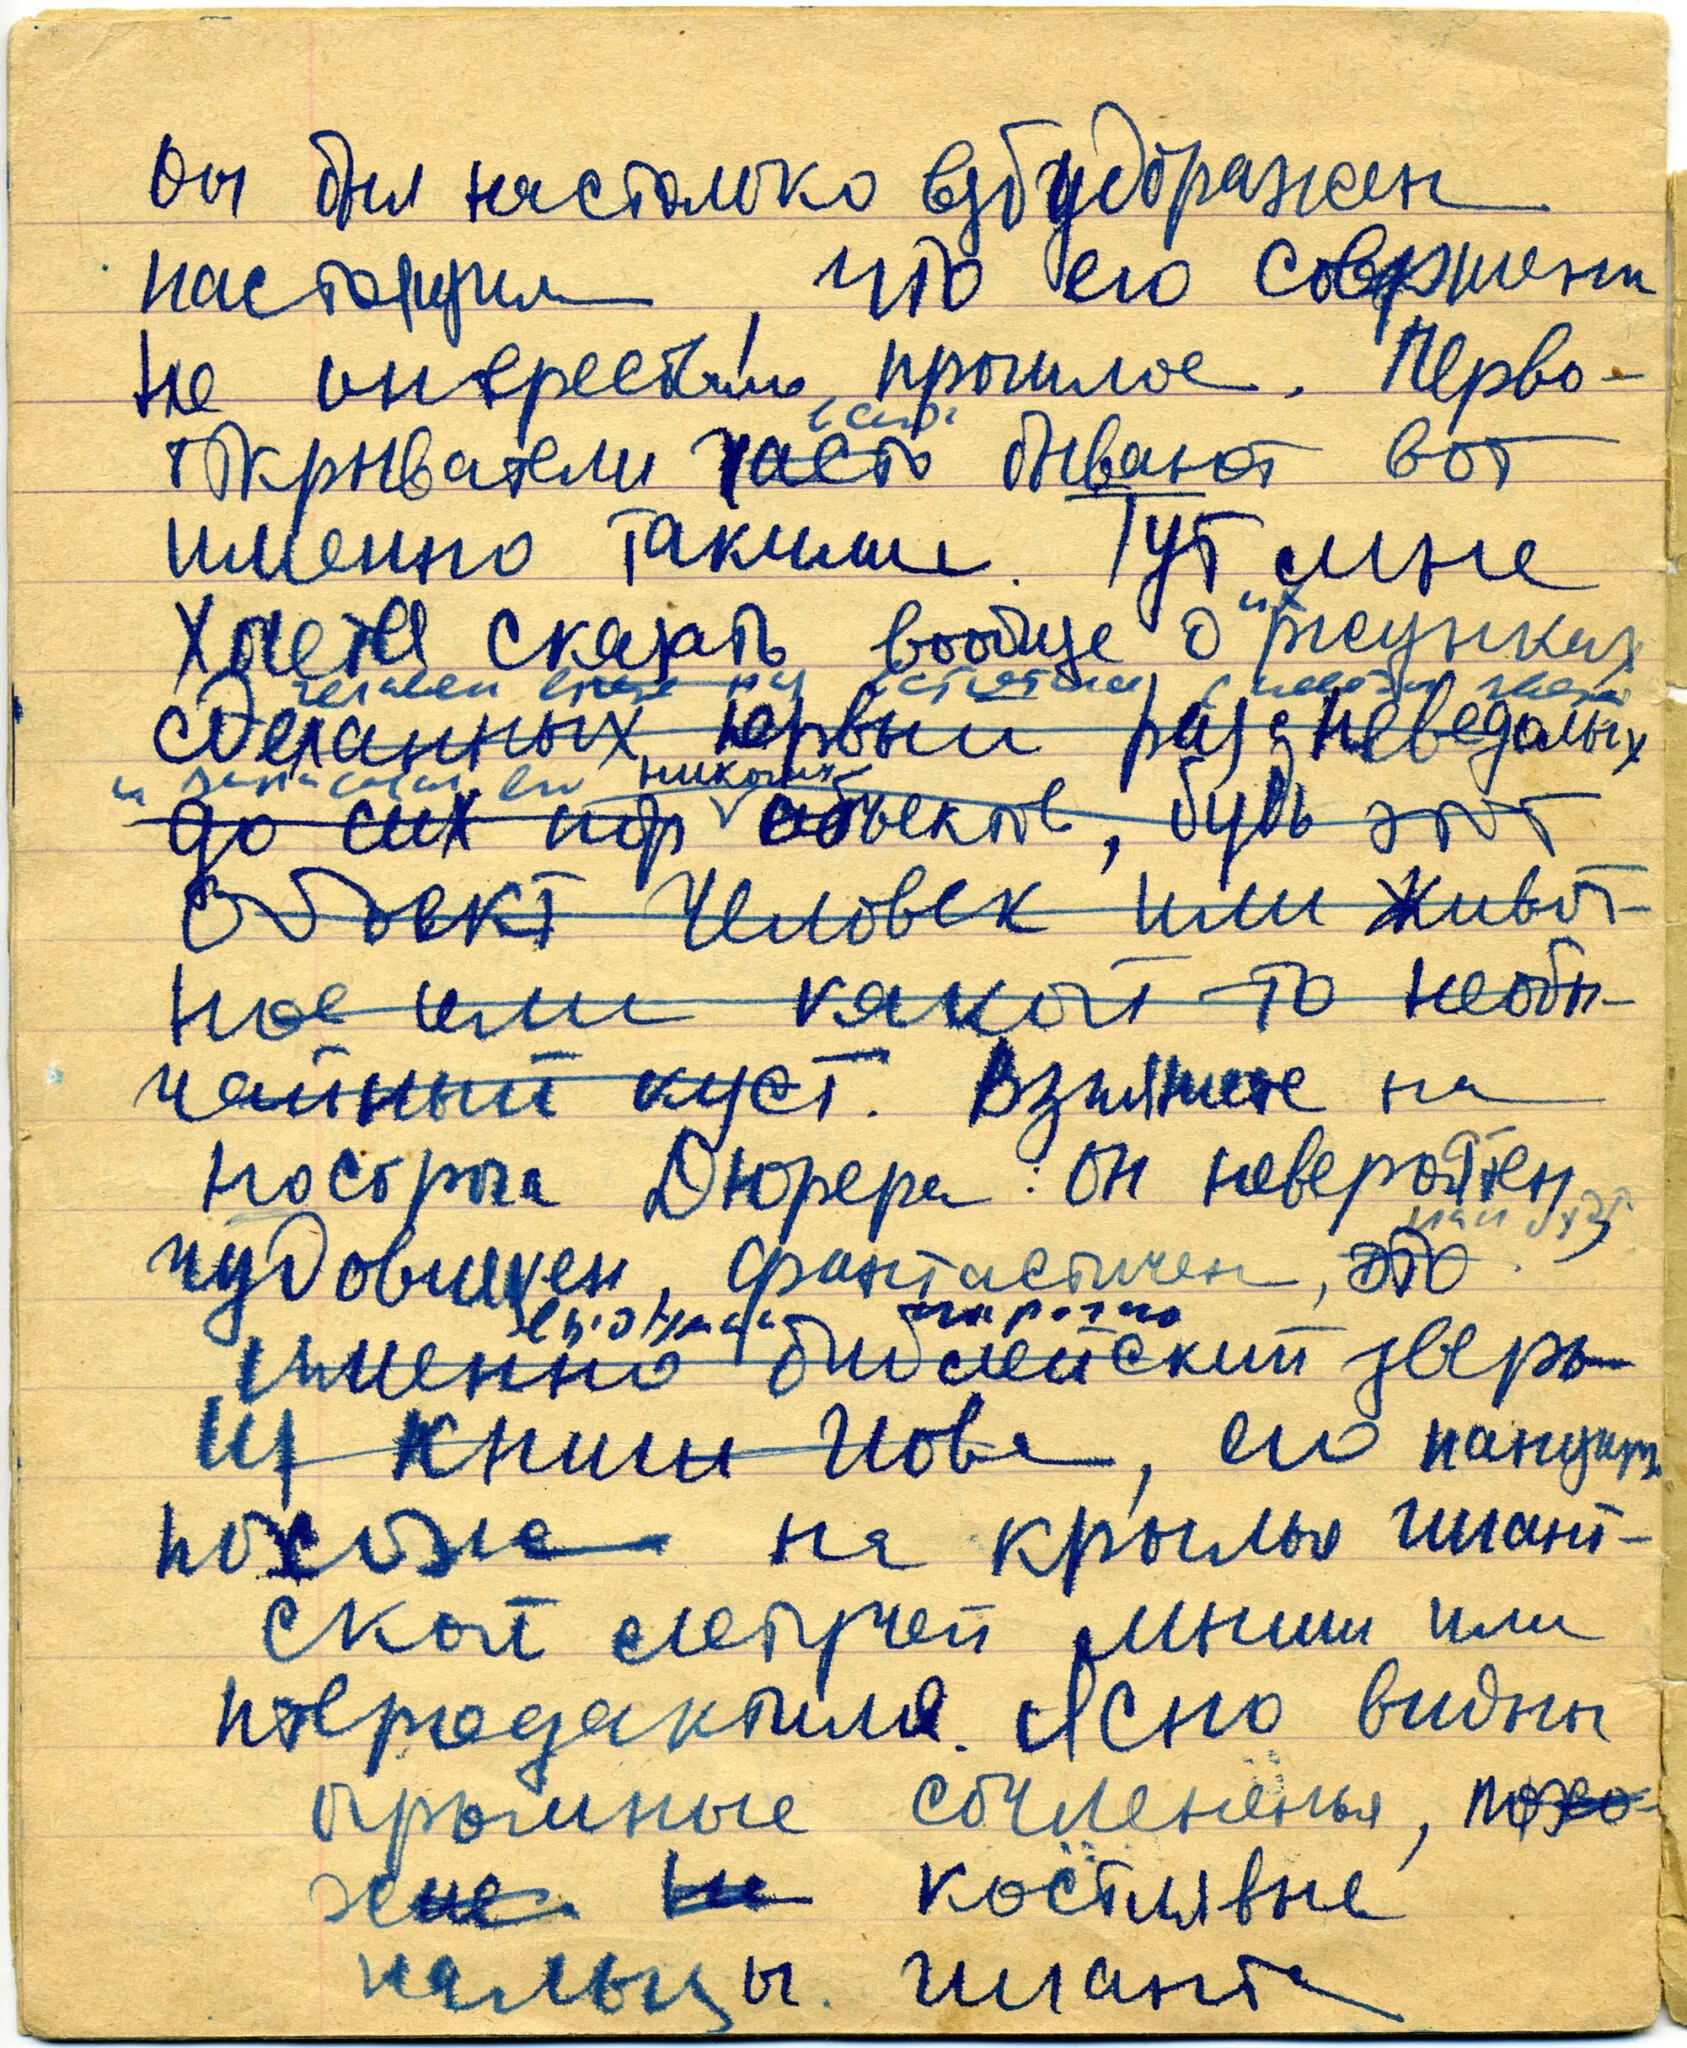 Он был настолько взбудоражен
настоящим, что его совершенно
не интересовало прошлое. Перво-
открыватели часто бывают вот
именно такими. Тут мне
хочется сказать вообще о рисунках
сделанных первый раз с неведомых
никогда
до сих пор объектов, будь этот
объект человек или живот-
ное или какой то необы-
чайный куст. Взгляните на
носорога Дюрера: он невероятен,
чудовищен, фантастичен, это
именно библейский зверь
из книги Иова, его панцирь
похожа на крылья гигант-
ской летучей мыши или
птеродактиля. Ясно видны
огромные сочлененья, похо-
жие на костлявые
пальцы гиганта